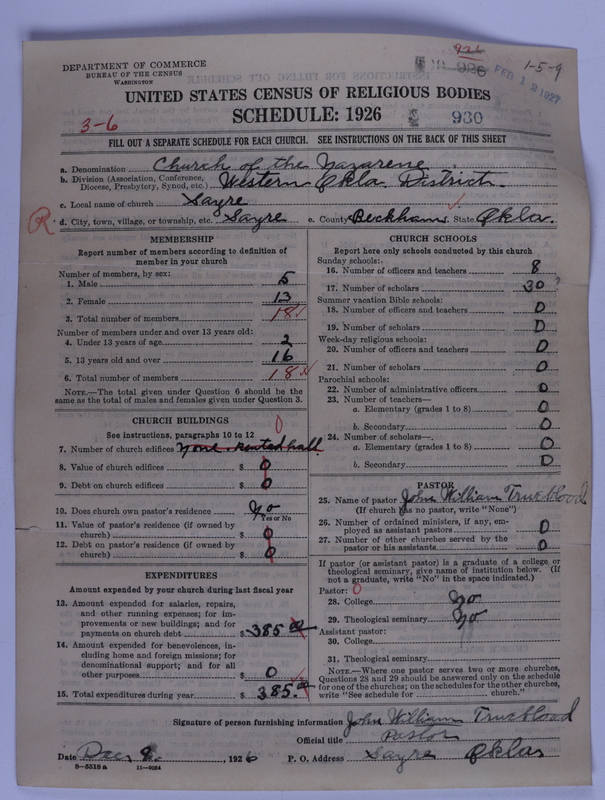 926
926
FEB 1 2 1927
1-5-9
DEPARTMENT OF COMMERCE
BUREAU OF THE CENSUS
WASHINGTON
UNITED STATES CENSUS OF RELIGIOUS BODIES
SCHEDULE: 1926
3-6
930
FILL OUT A SEPARATE SCHEDULE FOR EACH CHURCH. SEE INSTRUCTIONS ON THE BACK OF THIS SHEET
a. Denomination Church of the Nazarene
b. Division (Association, Conference, Diocese, Presbytery, Synod, etc.) Western Okla. District.
c. Local name of church Sayre
R d. City, town, village, or township, etc. Sayre e. County Beckham State Okla.
MEMBERSHIP
Report number of members according to definition of
member in your church
Number of members, by sex:
1. Male 5
2. Female 13
3. Total number of members 18
Number of members under and over 13 years old:
4. Under 13 years of age 2
5. 13 years old and over 16
6. Total number of members 18
NOTE.—The total given under Question 6 should be
same as the total of males and females given under Question 3.
CHURCH BUILDINGS 0
See instructions, paragraphs 10 to 12
7. Number of church edifices none. rented hall
8. Value of church edifices $ 0
9. Debt on church edifices $ 0
10. Does church own pastor's residence? No
Yes or No
11. Value of pastor's residence (if owned by
church) $ 0
12. Debt on pastor's residence (if owned by
church) $ 0
EXPENDITURES
Amount expended by your church during last fiscal year
13. Amount expended for salaries, repairs,
and other running expenses; for im-
provements or new buildings; and for
payments on church debt $ 385.00
14. Amount expended for benevolences, in-
cluding home and foreign missions; for
denominational support; and for all
other purposes $ 0
15. Total expenditures during year $ 385.00
CHURCH SCHOOLS
Report here only schools conducted by this church
Sunday schools:
16. Number of officers and teachers 8
17. Number of scholars 30
Summer vacation Bible schools:
18. Number of officers and teachers 0
19. Number of scholars 0
Week-day religious schools:
20. Number of officers and teachers 0
21. Number of scholars 0
Parochial schools:
22. Number of administrative officers 0
23. Number of teachers—
a. Elementary (grades 1 to 8) 0
b. Secondary 0
24. Number of scholars—
a. Elementary (grades 1 to 8) 0
b. Secondary 0
PASTOR
25. Name of pastor John William Trueblood
(If church has no pastor, write "None")
26. Number of ordained ministers, if any, em-
ployed as assistant pastors 0
27. Number of other churches served by the
pastor or his assistants 0
If pastor (or assistant pastor) is a graduate of a college or
theological seminary, give name of institution below. (If
not a graduate, write "No" in the space indicated.)
Pastor: 0
28. College No
29. Theological seminary No
Assistant pastor:
30. College
31. Theological seminary
NOTE.—Where one pastor serves two or more churches,
Questions 28 and 29 should be answered only on the schedule
for one of the churches; on the schedules for the other churches,
write "See schedule for church."
Signature of person furnishing information John William Trueblood
Official title Pastor
Date Dec 8, 1926 P. O. Address Sayre Okla
8—5518 a 11—9024